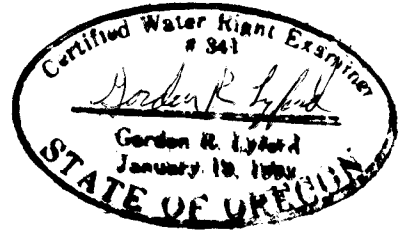 Certified Water Right Examiner
# 341
Gordon R Lyford
Gordon R. Lyford
January 19,
STATE OF OREGON